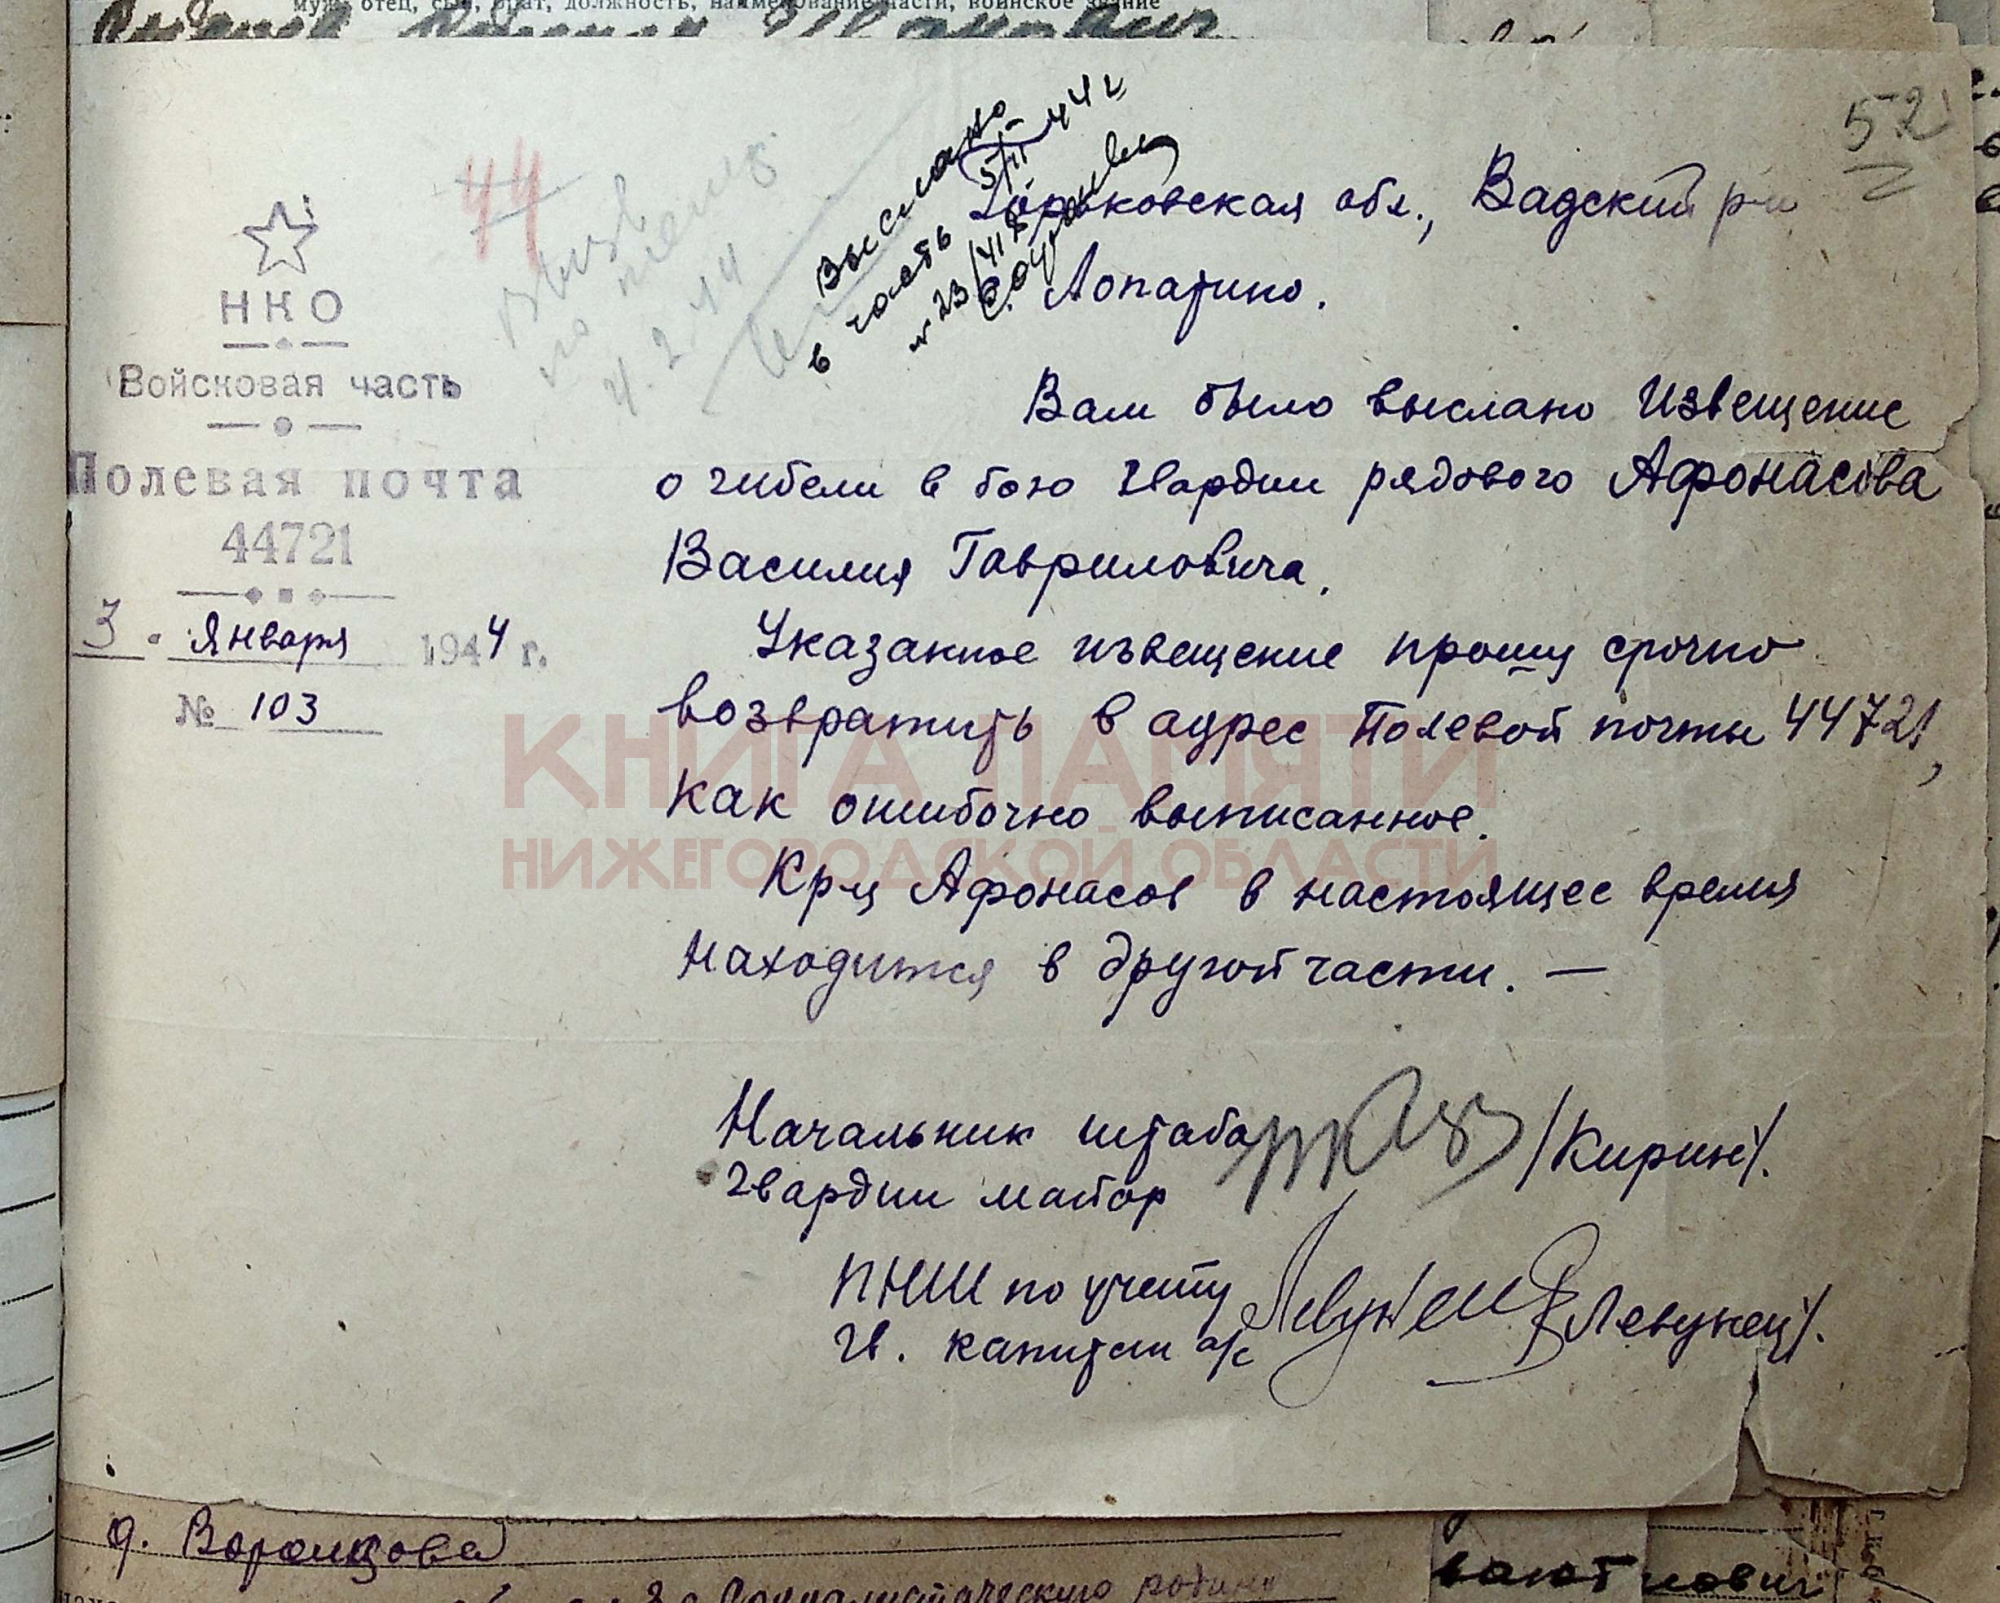 муж, отец, сын, брат, должность, наименование части, воинское звание
52
44
Выслано
в часть 5/II 44 г
4.2.44
НКО
Войсковая часть
Полевая почта
44721
3. января 1944 г.
№ 103
Горьковская обл., Вадский р-н
Лопатино.
Вам было выслано Извещение
о гибели в бою Гвардии рядового Афонасова
Василия Гавриловича.
Указанное извещение прошу срочно
возвратить в адрес Полевой почты 44721,
как ошибочно выписанное.
Кр-ц Афонасов в настоящее время
находится в другой части. —
Начальник штаба
Гвардии майор /Кирин/.
ПНШ по учету
Гв. капитан а/с /Левунец/.
КНИГА ПАМЯТИ
НИЖЕГОРОДСКОЙ ОБЛАСТИ
д. Воронцово